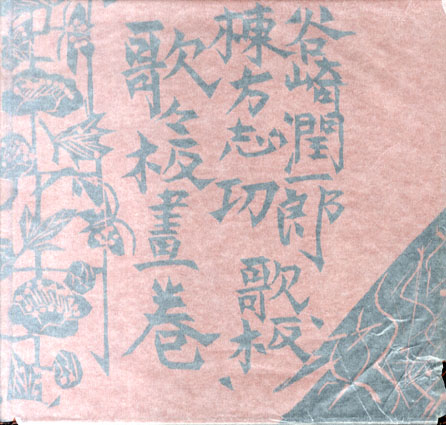 谷崎潤一郎
棟方志功
歌板
歌々板畫巻